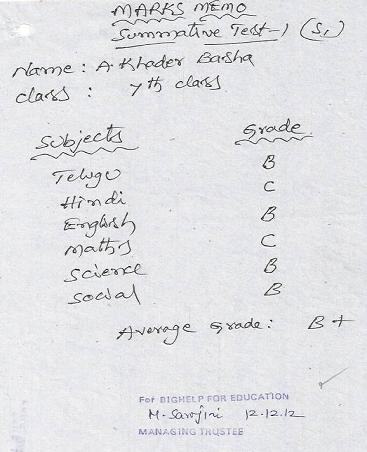 MARKS MEMO
Summative Test-1 (S1)
Name : A. Khader Basha
class : 7th class
Subjects Grade
Telugu B
Hindi C
English B
maths C
Science B
Social B
Average Grade: B+
For BIGHELP FOR EDUCATION
M. Sarojini 12.12.12
MANAGING TRUSTEE